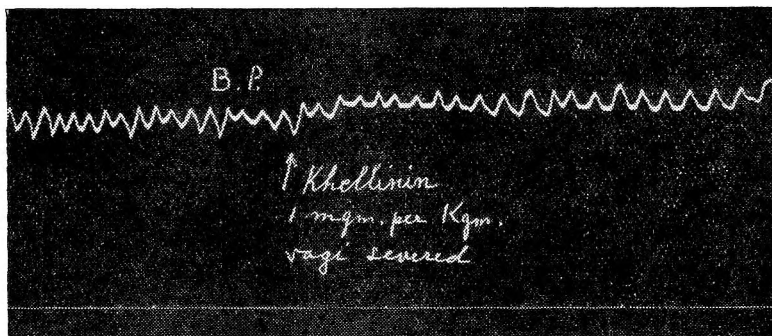 B.P.
↑ Khellinin
1 mgm. per Kgm.
vagi severed